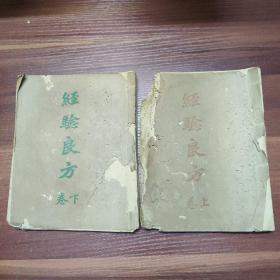 經驗良方
卷上
經驗良方
卷下